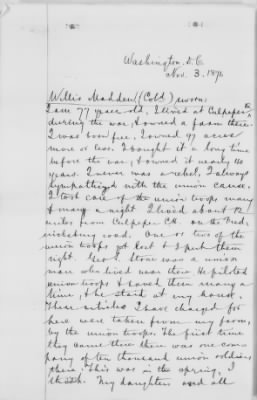 Washington, D.C.
Nov. 3. 187
Willis Madden (Cold) sworn:
I am 77 years old. I lived at Culpeper
during the war, & owned a farm there.
I was born free. I owned 97 acres
more or less. I bought it a long time
before the war; I owned it nearly 40
years. I never was a rebel, I always
sympathized with the union cause.
I took care of the union troops many
& many a night. I lived about 12
miles from Culpeper C.H. on the Fred-
ricksburg road. One or two of the
union troops got lost & I put them
right. Geo. Stone was a union
man who lived near there. He piloted
union troops & saved them many a
time, & he staid at my house.
These articles I have charged for
here were taken from my farm,
by the union troops. The first time
they came there there was one com-
pany of ten thousand union soldiers
there. This was in the spring, I
think. My daughters and all